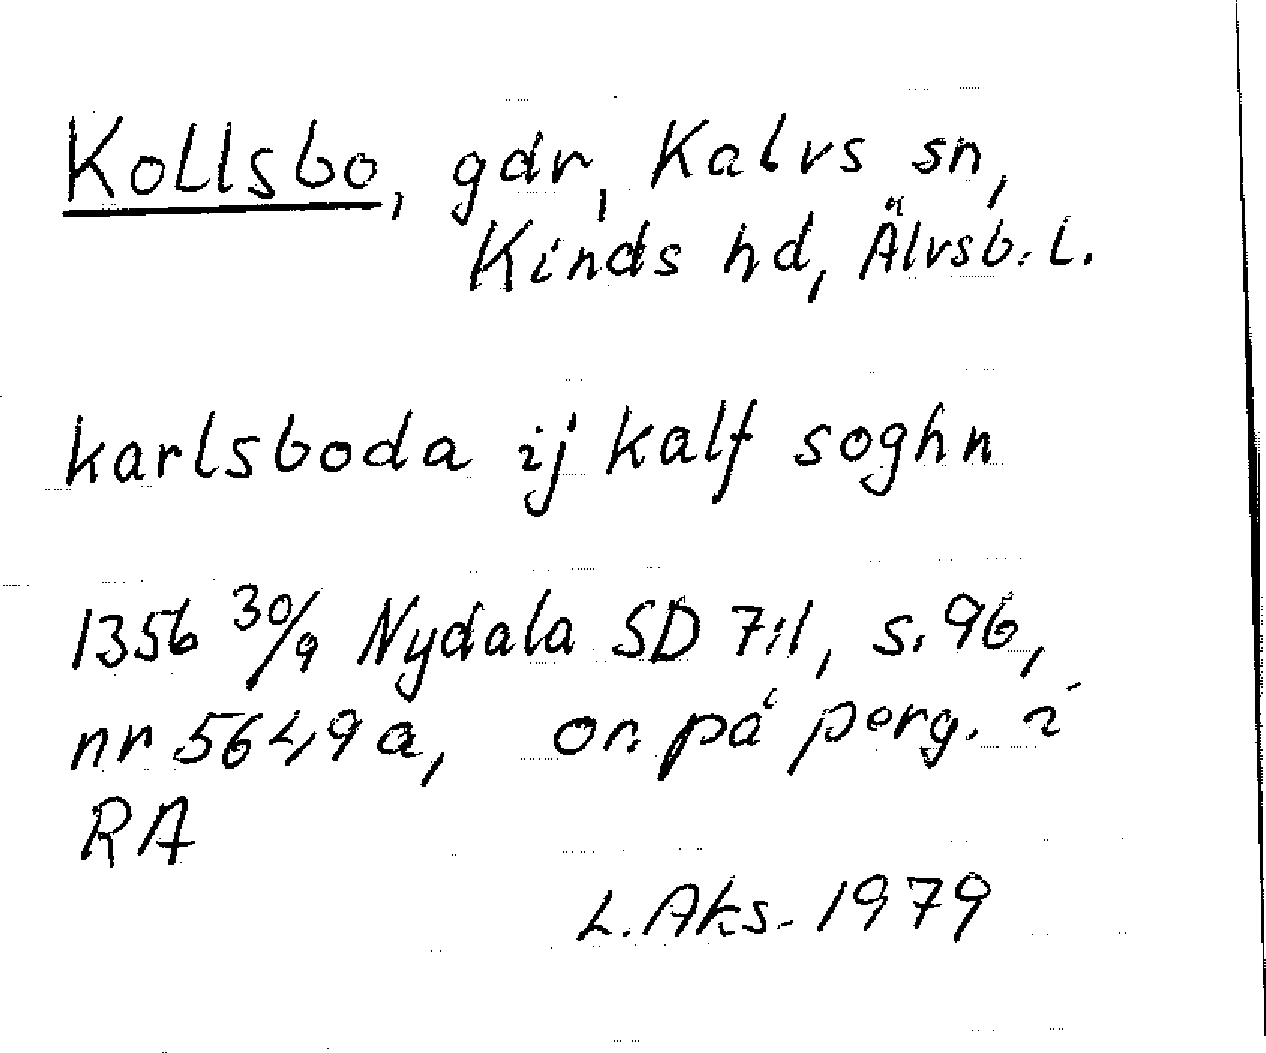 Kollsbo, gdr, Kalvs sn,
Kinds hd, Älvsb. l.
karlsboda ij kalf soghn
1356 30/9 Nydala SD 7:1, s. 96,
nr 5649 a, or. på perg. i
RA
L. Aks. 1979